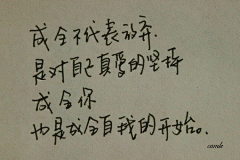 成全不代表放弃.
是对自己真爱的坚持
成全你
也是成全自我的开始。